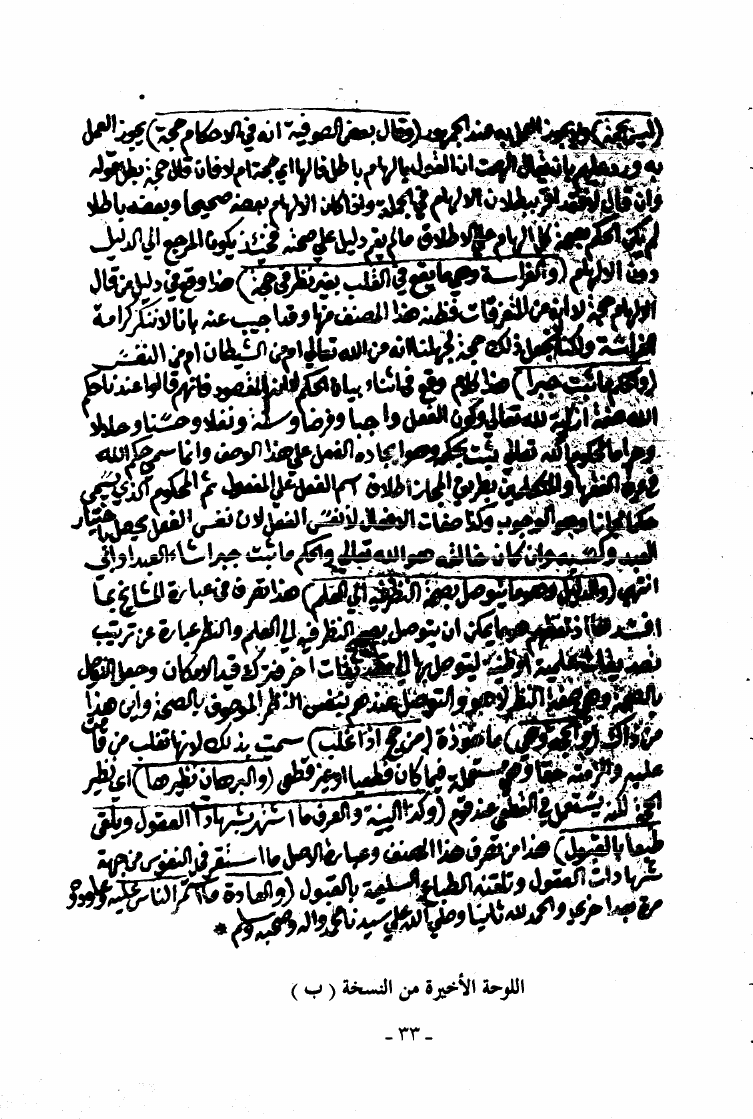 (ليس بحجة) ولا يجوز العمل به عند الجمهور (وقال بعض الصوفية انه في الاحكام حجة) يجوز العمل
به ورد عليهم بان يقال الهمت ان القول بالهام باطل فالهامي حجة ام لا فان قال حجة بطل قوله
وان قال لا فقد اقر ببطلان الالهام في الجملة ولو كان الالهام بعضه صحيحا وبعضه باطلا
لم يكن الحكم بصحة كل الهام على الاطلاق مالم يقم دليل على صحته فحينئذ يكون المرجع الى الدليل
دون الالهام (والفراسة وهي ما يقع في القلب بغير نظر في حجة) هذا وقع في دليل من قال
الالهام حجة لا انه من المتفرقات فظنه هذا المصنف منها وقد اجيب عنه بانا لا ننكر كرامة
الفراسة ولكنا لا نجعل ذلك حجة لجهلنا انه من الله تعالى او من الشيطان او من النفس
(والحكم ما ثبت جبرا) هذا كلام وقع في اثناء بيان الحكم المقصود فانهم قالوا عندنا حكم
الله صفة ازلية لله تعالى وكون الفعل واجبا وفرضا وسنة ونفلا وحسنا وحلالا
وحراما محكوم الله تعالى ثبت بحكمه وهو ايجاده الفعل على هذا الوصف وانما سمي حكم الله
في عرف الفقهاء والمتكلمين بطريق المجاز اطلاق اسم الفعل على المفعول ثم المحكوم الذي يسمى
حكما مجازا وهو الوجوب وكذا صفات الافعال لا نفس الفعل لان نفس الفعل يحصل باختيار
العبد وكسبه وان كان خالقه هو الله تعالى والحكم ما ثبت جبرا شاء العبد او ابى
انتهى (والدليل وهو ما يتوصل بصحة النظر فيه الى العلم) هذا تصرف في عبارة المشايخ بما
افسدها اذ عندهم هو ما يمكن ان يتوصل بصحيح النظر فيه الى العلم والنظر عبارة عن ترتيب
تصديقات علمية او ظنية ليتوصل بها الى تصديقات اخر فترك قيد الامكان وجعل التوصل
بالصحة وهي صفة النظر لا هو والتوصل عندهم بنفس النظر الموصوف بالصحة واين هذا
من ذاك (والحجة وهي) مأخوذة (من حج اذا غلب) سميت بذلك لانها تغلب من قامت
عليه والزمته حقا وهي مستعملة فيما كان قطعيا او غير قطعي (والبرهان نظيرها) اي نظير
الحجة لكن يستعمل في القطعي عند قوم (وكذا البينة والعرف ما اشتهر بشهادات العقول وتلقى
طبعا بالقبول) هذا من تصرف هذا المصنف وعبارة الاصل ما استقر في النفوس من جهة
شهادات العقول وتلقته الطباع السليمة بالقبول (والعادة ما استمر الناس عليه وعاودوه
مرة بعد اخرى) والحمد لله وصلى الله على سيدنا محمد واله وصحبه وسلم *
اللوحة الأخيرة من النسخة ( ب )
- ٣٣ -